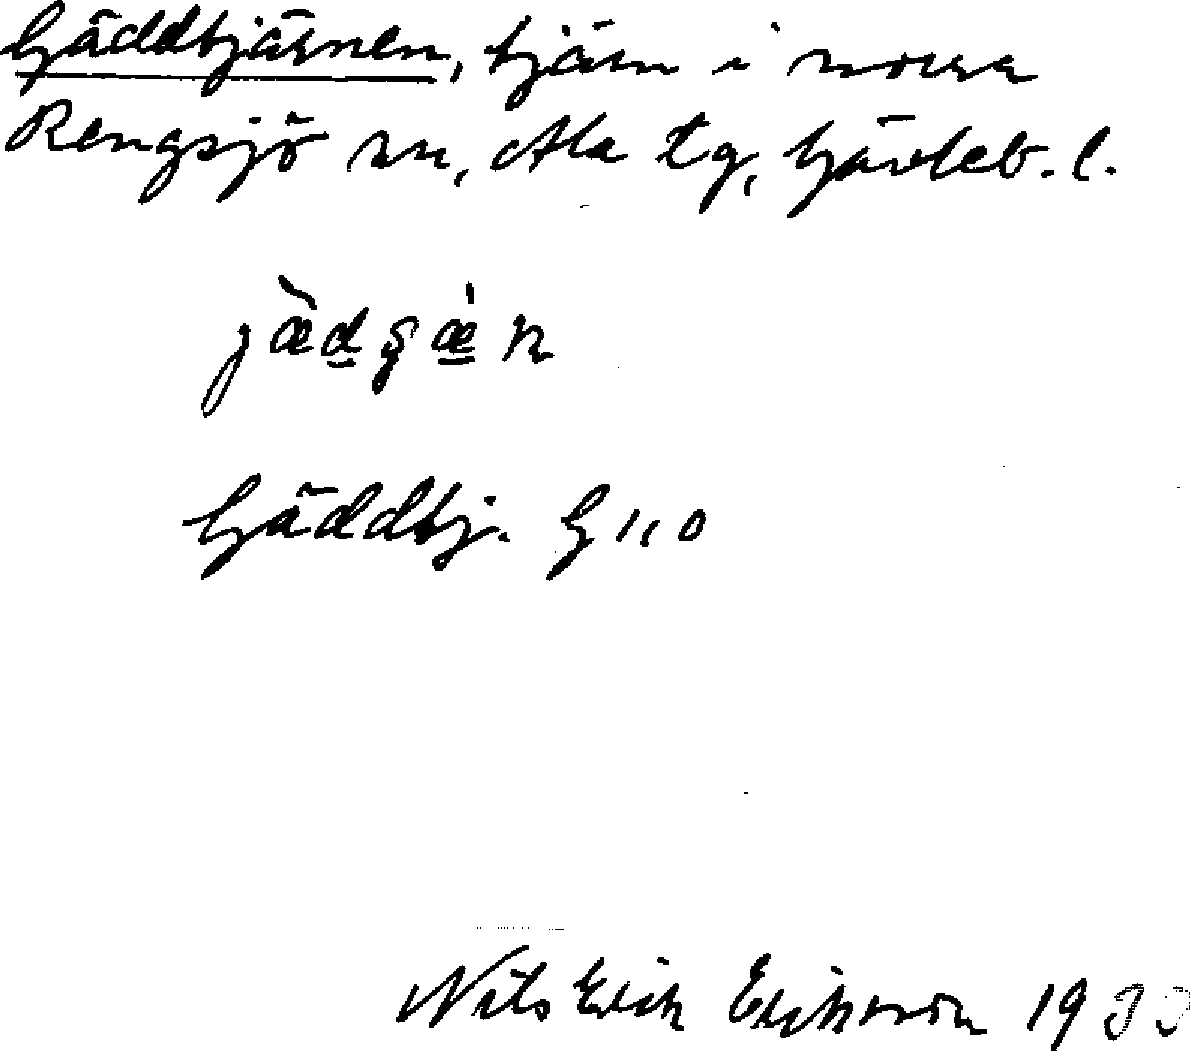 Gäddtjärnen, tjärn i norra
Rengsjö sn, Ala tg, Gävleb. l.
Gäddtj. G 110
Nils Erik Eriksson 1933